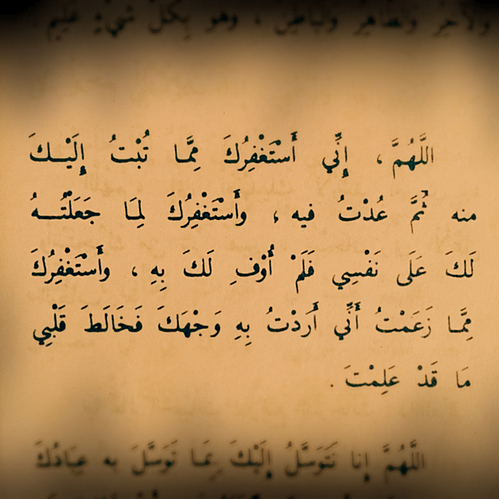 والآخر والظاهر والباطن ، وهو بكل شيء عليم
اللَّهُمَّ ، إِنِّي أَسْتَغْفِرُكَ مِمَّا تُبْتُ إِلَيْكَ
منه ثُمَّ عُدْتُ فيه ، وأَسْتَغْفِرُكَ لِمَا جَعَلْتُهُ
لَكَ عَلَى نَفْسِي فَلَمْ أُوْفِ لَكَ بِهِ ، وَأَسْتَغْفِرُكَ
مِمَّا زَعَمْتُ أَنِّي أَرَدْتُ بِهِ وَجْهَكَ فَخَالَطَ قَلْبِي
مَا قَدْ عَلِمْتَ .
اللَّهُمَّ إِنا نَتَوَسَّلُ إِلَيْكَ بِمَا تَوَسَّلَ به عِبَادُكَ